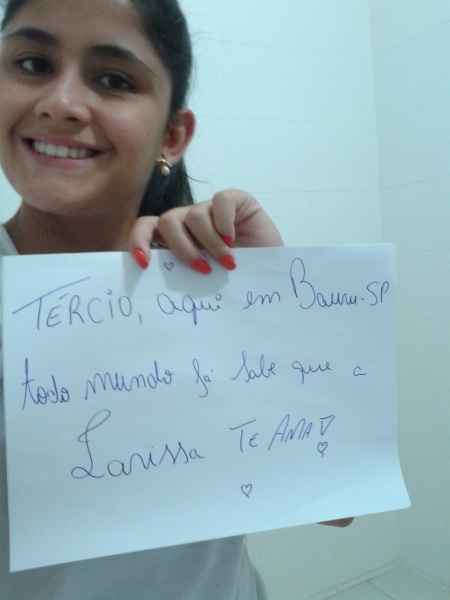 TÉRCIO, aqui em Bauru-SP
todo mundo já sabe que a
Larissa TE AMA!